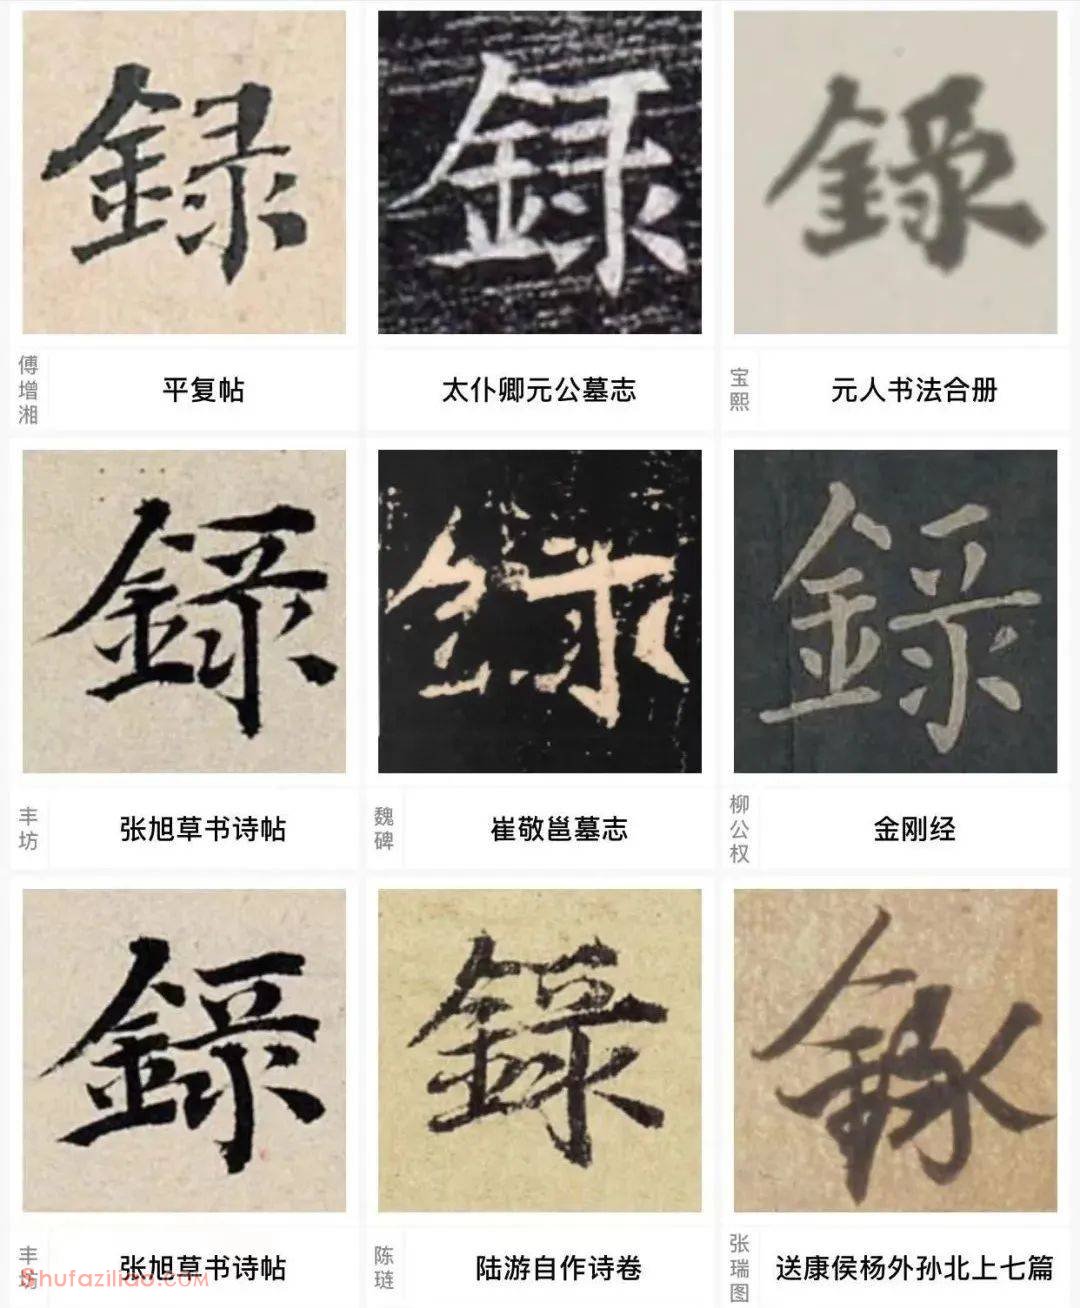 録 録 録
傅增湘 平复帖
太仆卿元公墓志
宝熙 元人书法合册
録 録 録
丰坊 张旭草书诗帖
魏碑 崔敬邕墓志
柳公权 金刚经
録 録 録
丰坊 张旭草书诗帖
陈琏 陆游自作诗卷
张瑞图 送康侯杨外孙北上七篇
Shufaziliao.com